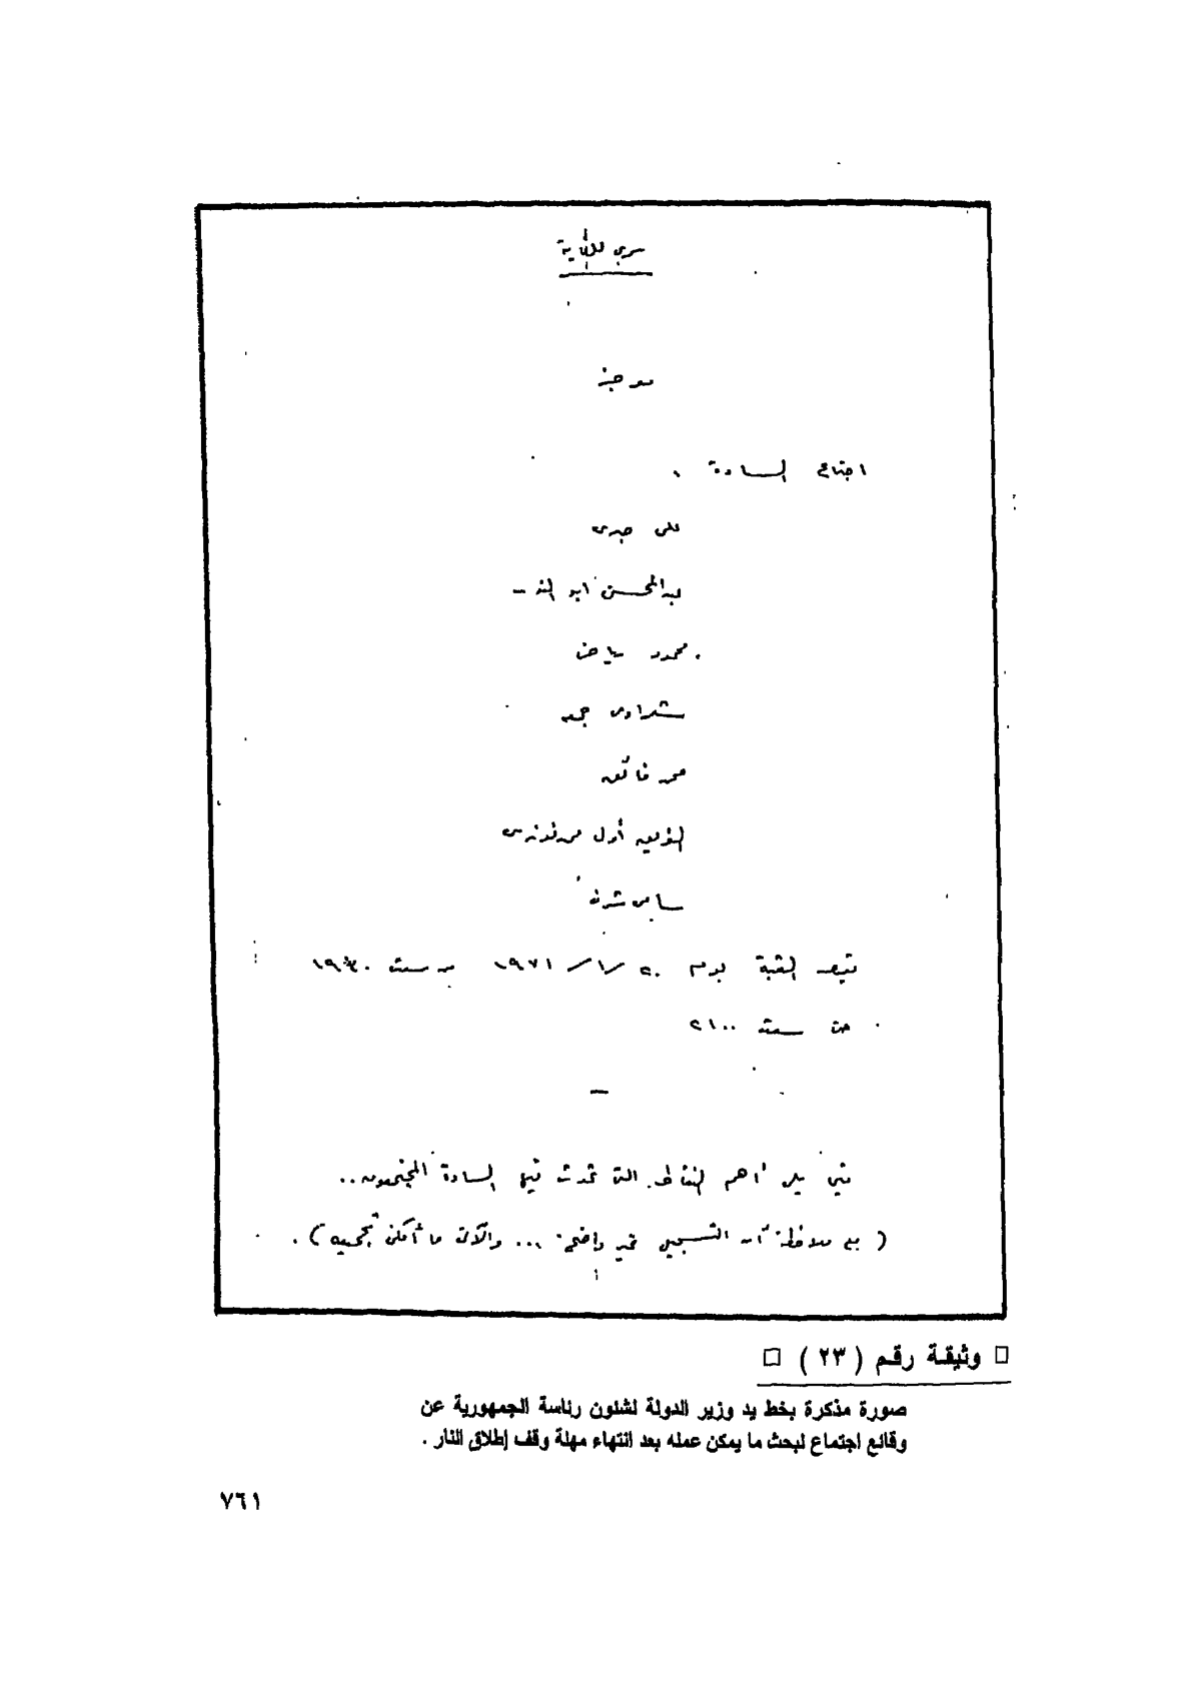 سري للغاية
موجز
اجتماع السادة .
على صبرى
عبد المحسن ابو النور
محمود رياض
شعراوى جمعه
محمد فائق
الفريق أول محمد فوزى
سامى شرف
بقصر القبة يوم ٢٠ / ١ / ١٩٧١ من ساعت ١٩٣٠
حتى ساعت ٢١٠٠
—
فيما يلى أهم النقاط التى تحدث فيها السادة المجتمعون ..
( مع ملاحظة أن التسجيل غير واضح ... والآتى ما أمكن تجميعه ) .
□ وثيقة رقم ( ٢٣ ) □
صورة مذكرة بخط يد وزير الدولة لشئون رئاسة الجمهورية عن
وقائع اجتماع لبحث ما يمكن عمله بعد انتهاء مهلة وقف إطلاق النار .
٧٦١